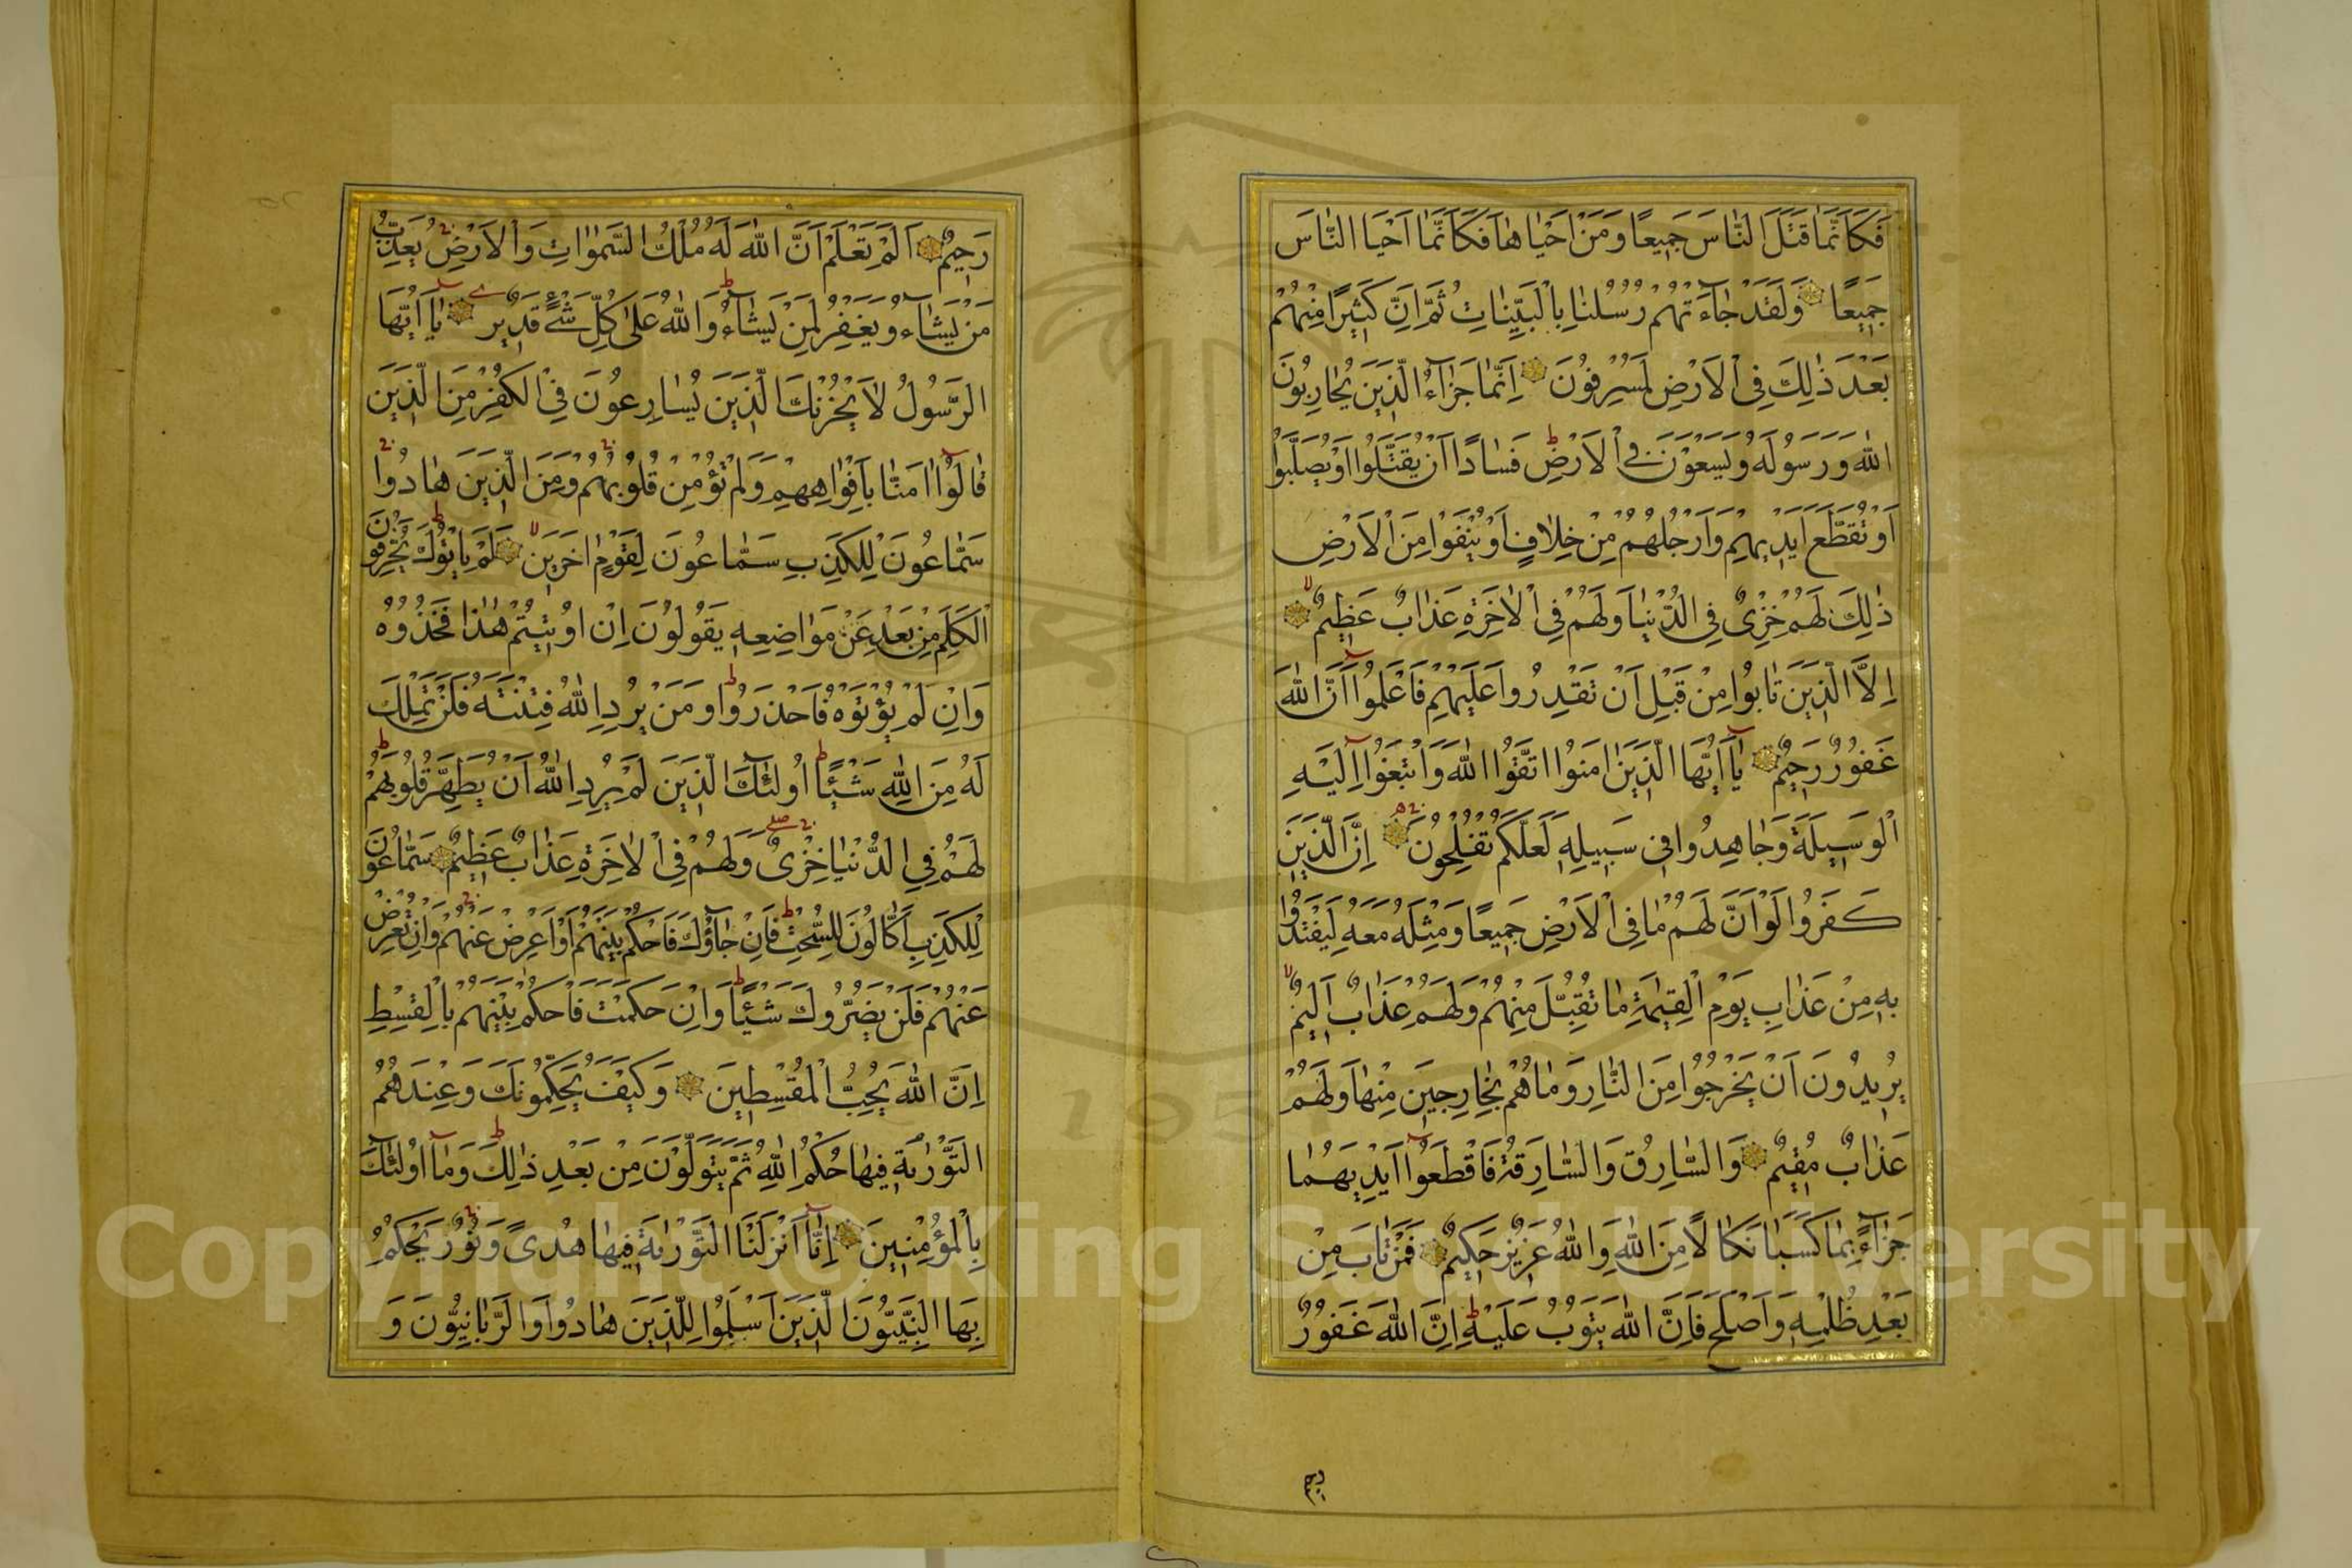 فَكَاَنَّمَا قَتَلَ النَّاسَ جَمِيعًا وَمَنْ اَحْيَاهَا فَكَاَنَّمَا اَحْيَا النَّاسَ
جَمِيعًا وَلَقَدْ جَاءَتْهُمْ رُسُلُنَا بِالْبَيِّنَاتِ ثُمَّ اِنَّ كَثِيرًا مِنْهُمْ
بَعْدَ ذٰلِكَ فِى الْاَرْضِ لَمُسْرِفُونَ اِنَّمَا جَزَاءُ الَّذِينَ يُحَارِبُونَ
اللهَ وَرَسُولَهُ وَيَسْعَوْنَ فِى الْاَرْضِ فَسَادًا اَنْ يُقَتَّلُوا اَوْ يُصَلَّبُوا
اَوْ تُقَطَّعَ اَيْدِيهِمْ وَاَرْجُلُهُمْ مِنْ خِلَافٍ اَوْ يُنْفَوْا مِنَ الْاَرْضِ
ذٰلِكَ لَهُمْ خِزْىٌ فِى الدُّنْيَا وَلَهُمْ فِى الْاٰخِرَةِ عَذَابٌ عَظِيمٌ
اِلَّا الَّذِينَ تَابُوا مِنْ قَبْلِ اَنْ تَقْدِرُوا عَلَيْهِمْ فَاعْلَمُوا اَنَّ اللهَ
غَفُورٌ رَحِيمٌ يَا اَيُّهَا الَّذِينَ اٰمَنُوا اتَّقُوا اللهَ وَابْتَغُوا اِلَيْهِ
الْوَسِيلَةَ وَجَاهِدُوا فِى سَبِيلِهِ لَعَلَّكُمْ تُفْلِحُونَ اِنَّ الَّذِينَ
كَفَرُوا لَوْ اَنَّ لَهُمْ مَا فِى الْاَرْضِ جَمِيعًا وَمِثْلَهُ مَعَهُ لِيَفْتَدُوا
بِهِ مِنْ عَذَابِ يَوْمِ الْقِيٰمَةِ مَا تُقُبِّلَ مِنْهُمْ وَلَهُمْ عَذَابٌ اَلِيمٌ
يُرِيدُونَ اَنْ يَخْرُجُوا مِنَ النَّارِ وَمَا هُمْ بِخَارِجِينَ مِنْهَا وَلَهُمْ
عَذَابٌ مُقِيمٌ وَالسَّارِقُ وَالسَّارِقَةُ فَاقْطَعُوا اَيْدِيَهُمَا
جَزَاءً بِمَا كَسَبَا نَكَالًا مِنَ اللهِ وَاللهُ عَزِيزٌ حَكِيمٌ فَمَنْ تَابَ مِنْ
بَعْدِ ظُلْمِهِ وَاَصْلَحَ فَاِنَّ اللهَ يَتُوبُ عَلَيْهِ اِنَّ اللهَ غَفُورٌ
رحيم
رَحِيمٌ اَلَمْ تَعْلَمْ اَنَّ اللهَ لَهُ مُلْكُ السَّمٰوَاتِ وَالْاَرْضِ يُعَذِّبُ
مَنْ يَشَاءُ وَيَغْفِرُ لِمَنْ يَشَاءُ وَاللهُ عَلٰى كُلِّ شَىْءٍ قَدِيرٌ يَا اَيُّهَا
الرَّسُولُ لَا يَحْزُنْكَ الَّذِينَ يُسَارِعُونَ فِى الْكُفْرِ مِنَ الَّذِينَ
قَالُوا اٰمَنَّا بِاَفْوَاهِهِمْ وَلَمْ تُؤْمِنْ قُلُوبُهُمْ وَمِنَ الَّذِينَ هَادُوا
سَمَّاعُونَ لِلْكَذِبِ سَمَّاعُونَ لِقَوْمٍ اٰخَرِينَ لَمْ يَاْتُوكَ يُحَرِّفُونَ
الْكَلِمَ مِنْ بَعْدِ عَنْ مَوَاضِعِهِ يَقُولُونَ اِنْ اُوتِيتُمْ هٰذَا فَخُذُوهُ
وَاِنْ لَمْ تُؤْتَوْهُ فَاحْذَرُوا وَمَنْ يُرِدِ اللهُ فِتْنَتَهُ فَلَنْ تَمْلِكَ
لَهُ مِنَ اللهِ شَيْئًا اُولٰئِكَ الَّذِينَ لَمْ يُرِدِ اللهُ اَنْ يُطَهِّرَ قُلُوبَهُمْ
لَهُمْ فِى الدُّنْيَا خِزْىٌ وَلَهُمْ فِى الْاٰخِرَةِ عَذَابٌ عَظِيمٌ سَمَّاعُونَ
لِلْكَذِبِ اَكَّالُونَ لِلسُّحْتِ فَاِنْ جَاؤُكَ فَاحْكُمْ بَيْنَهُمْ اَوْ اَعْرِضْ عَنْهُمْ وَاِنْ تُعْرِضْ
عَنْهُمْ فَلَنْ يَضُرُّوكَ شَيْئًا وَاِنْ حَكَمْتَ فَاحْكُمْ بَيْنَهُمْ بِالْقِسْطِ
اِنَّ اللهَ يُحِبُّ الْمُقْسِطِينَ وَكَيْفَ يُحَكِّمُونَكَ وَعِنْدَهُمُ
التَّوْرٰيةُ فِيهَا حُكْمُ اللهِ ثُمَّ يَتَوَلَّوْنَ مِنْ بَعْدِ ذٰلِكَ وَمَا اُولٰئِكَ
بِالْمُؤْمِنِينَ اِنَّا اَنْزَلْنَا التَّوْرٰيةَ فِيهَا هُدًى وَنُورٌ يَحْكُمُ
بِهَا النَّبِيُّونَ الَّذِينَ اَسْلَمُوا لِلَّذِينَ هَادُوا وَالرَّبَّانِيُّونَ وَ
Copyright © King Saud University
1957